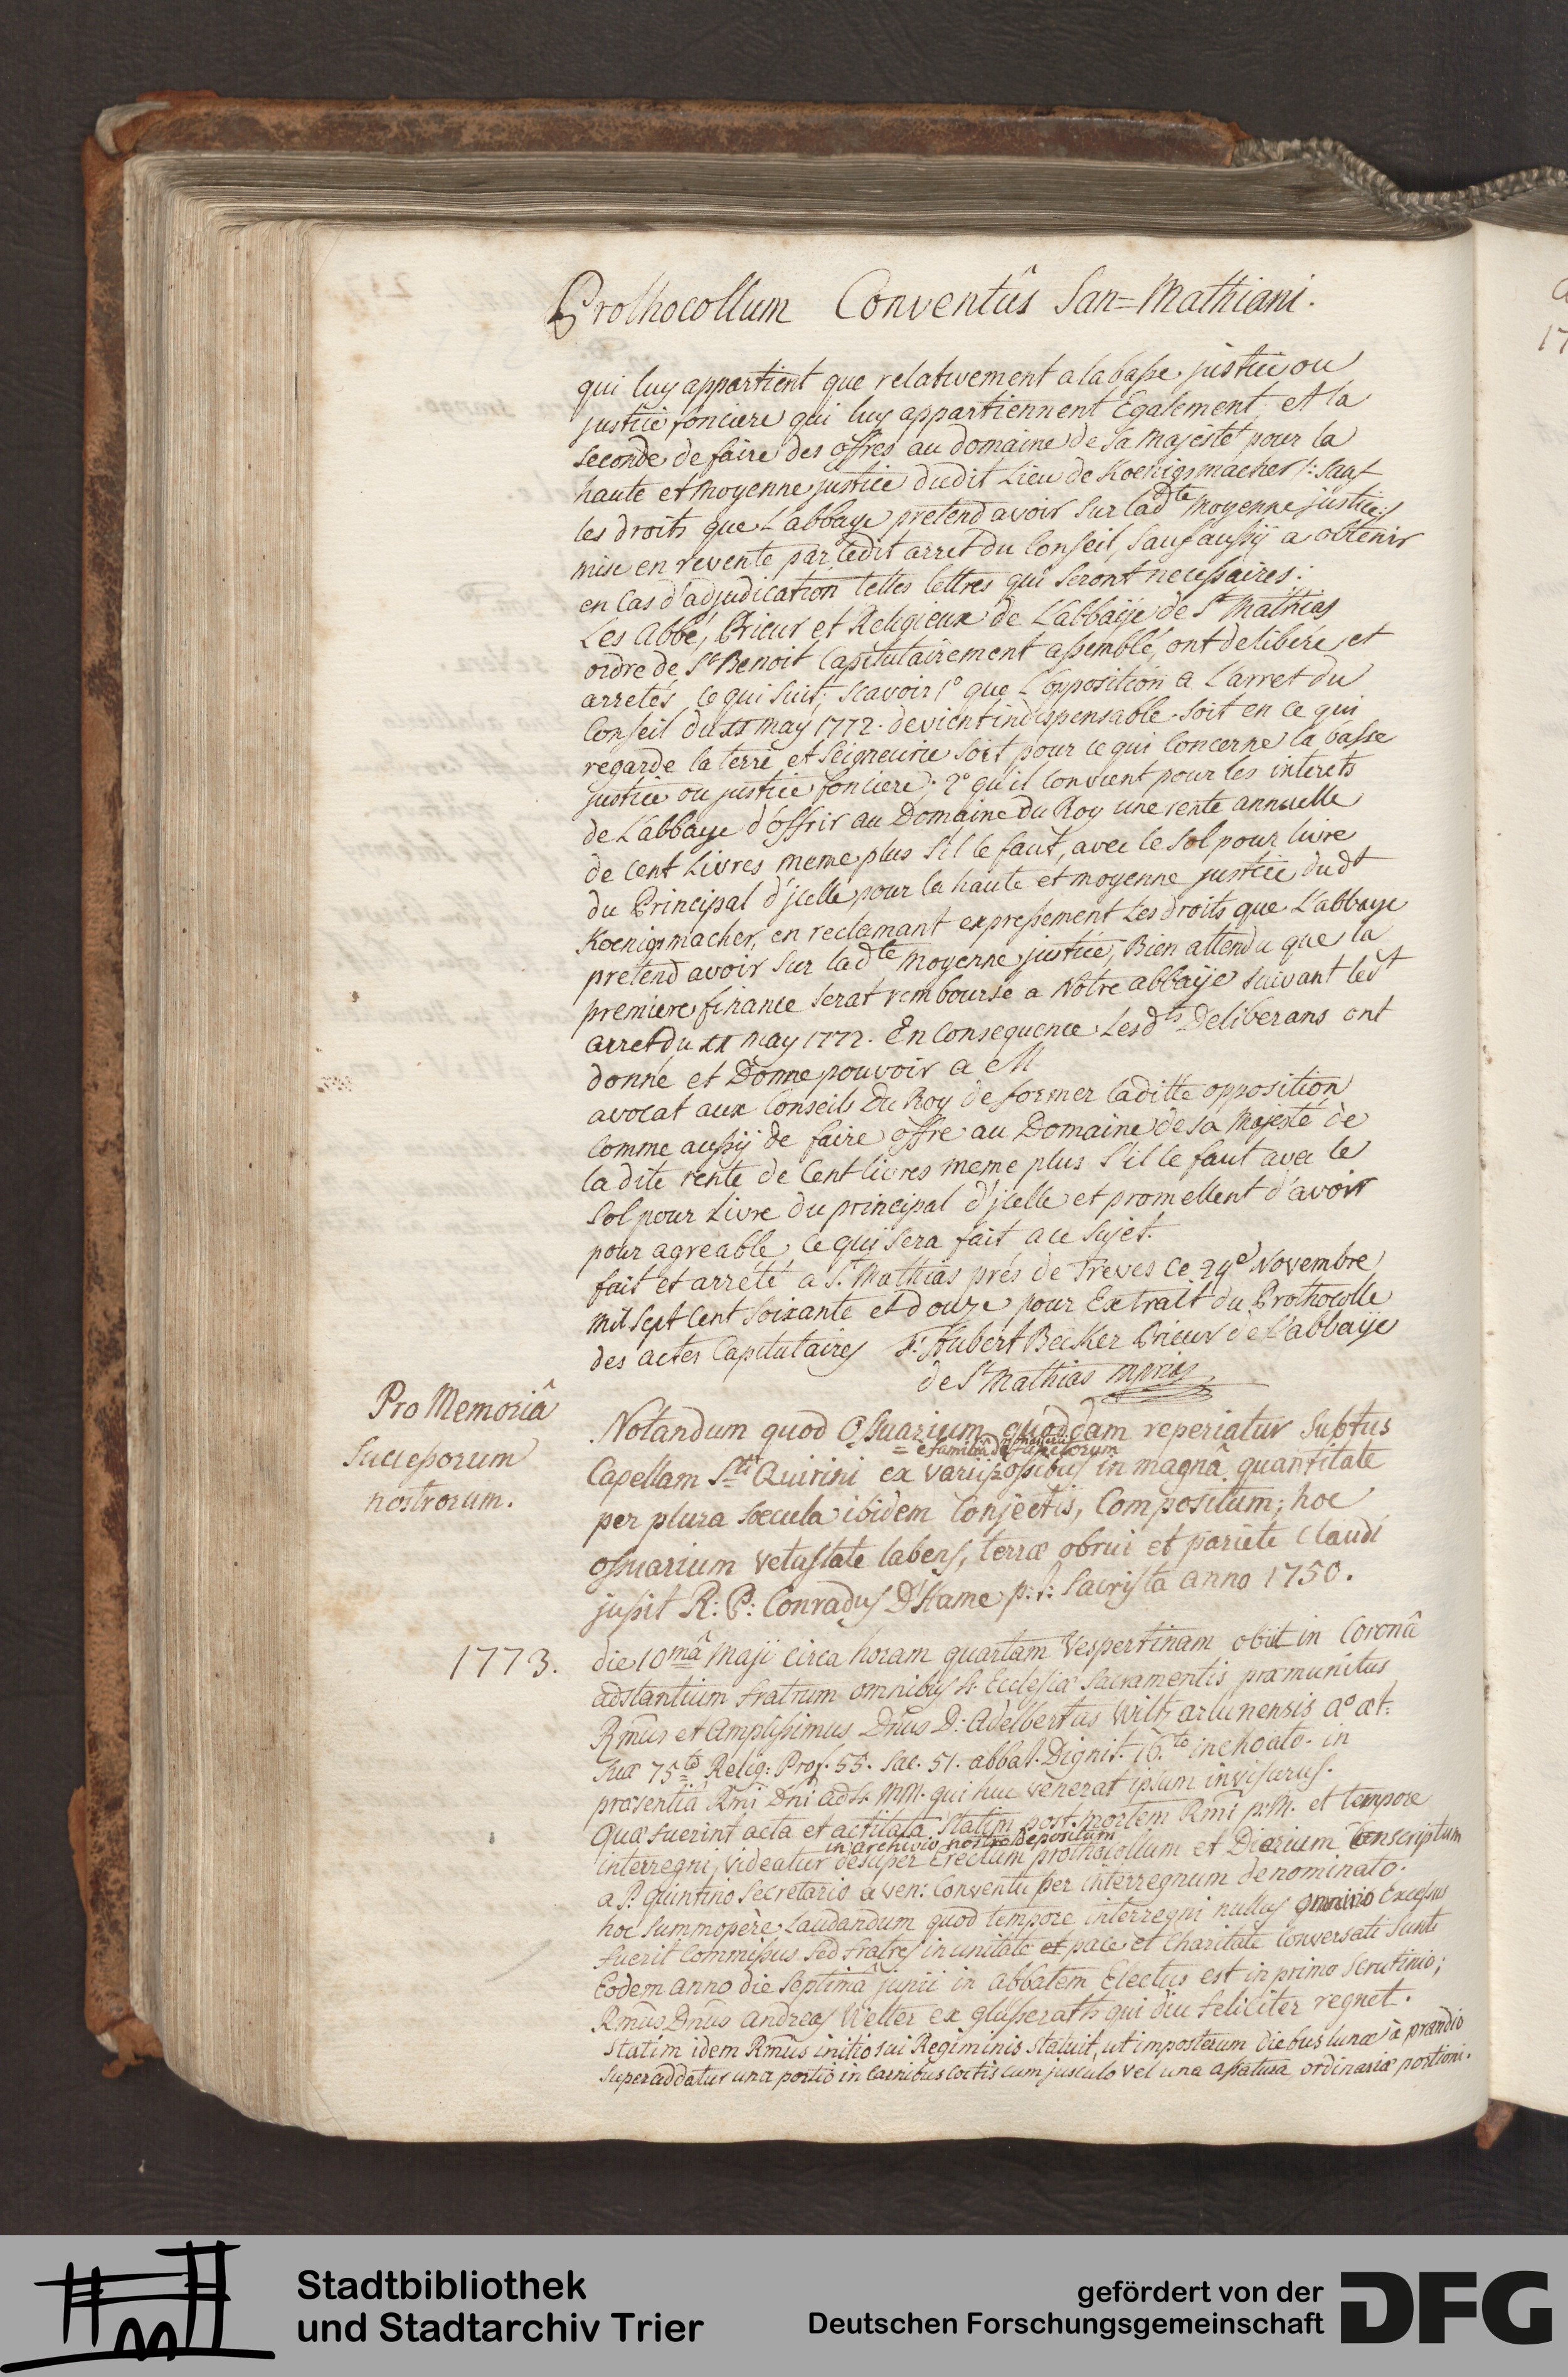 Prothocollum Conventûs San=Mathiani.
qui luy appartient que relativement a la basse justice ou
justice fonciere qui luy appartiennent Egalement, et la
seconde de faire des offres au domaine de sa majesté pour la
haute et moyenne justice dudit Lieu de Koenigsmacher /: sauf
les droits que L'abbaye pretend avoir sur lad.te moyenne justice :/
mise en revente par ledit arret du Conseil, sauf aussÿ a obtenir
en Cas d'adjudication telles lettres qui seront necessaires:
Les Abbé, Prieur et Religieux de L'abbaÿe de St Mathias
ordre de St Benoit Capitulairement assemblé, ont deliberé et
arretés ce qui suit; scavoir 1° que L'opposition a L'arret du
Conseil du xx may 1772. devient indispensable soit en ce qui
regarde la terre et seigneurie soit pour ce qui Concerne la basse
justice ou justice fonciere; 2° qu'il convient pour les interets
de L'abbaye d'offrir au Domaine du Roy une rente annuelle
de Cent Livres meme plus s'il le faut, avec le sol pour livre
du Principal d'jcelle pour la haute et moyenne justice dudt
Koenigsmacher, en reclamant expressement les droits que L'abbaye
pretend avoir sur ladte moyenne justice, Bien attendu que la
premiere finance serat remboursé a Notre abbaÿe suivant ledt
arret du xx may 1772. En Consequence Lesdts Deliberans ont
donné et Donne pouvoir a M
avocat aux Conseils du Roy de former laditte opposition
Comme aussÿ de faire offre au Domaine de sa Majesté de
la dite rente de Cent livres meme plus s'il le faut avec le
sol pour Livre du principal d'jcelle et promettent d'avoir
pour agreable ce qui sera fait a ce sujet.
fait et arrété a St Mathias prés de Treves ce 24e Novembre
mil sept Cent soixante et douze pour Extrait du Prothocolle
des actes Capitulaires F: Hubert Becker Prieur de L'abbaÿe
de St Mathias mpria
Pro Memoriâ
Successorum
nostrorum.
Notandum quod Ossuarium quoddam reperiatur subtus
defunctorum
Capellam Sti Quirini ex variis ossibus in magnâ quantitate
per plura sæcula ibidem Conjectis, Compositum; hoc
ossuarium vetustate labens, terræ obrui et pariete Claudi
jussit R: P: Conradus D'Hame p: t: Sacrista anno 1750.
1773.
die 10mâ Maji circa horam quartam Vespertinam obiit in Coronâ
adstantium fratrum omnibus S: Ecclesiæ Sacramentis præmunitus
Rmus et Amplissimus Dnus D: Adelbertus Wiltz arlunensis a° æt:
suæ 75to Relig: Prof. 55. Sac. 51. abbat. Dignit. 16to inchoato. in
præsentiâ Rmi Dni ad S. MM. qui huc venerat ipsum invisurus.
Quæ fuerint acta et actitata statim post mortem Rmi p: M. et tempore
in archivio nostro Depositum
interregni, videatur desuper Erectum prothocollum et Diarium Conscriptum
a P. Quintino Secretario a ven: Conventu per interregnum denominato.
hoc summopère Laudandum quod tempore interregni nullus omnino Excessus
fuerit Commissus sed fratres in unitate et pace et Charitate Conversati sunt.
Eodem anno die septimâ junii in abbatem Electus est in primo scrutinio;
Rmus Dnus Andreas Welter ex glusserath qui diu feliciter regnet.
Statim idem Rmus initio sui Regiminis statuit, ut imposterum diebus lunæ à prandio
superaddatur una portio in Carnibus Coctis cum jusculo vel una assatura ordinariæ portioni.
Stadtbibliothek
und Stadtarchiv Trier
gefördert von der
Deutschen Forschungsgemeinschaft
DFG